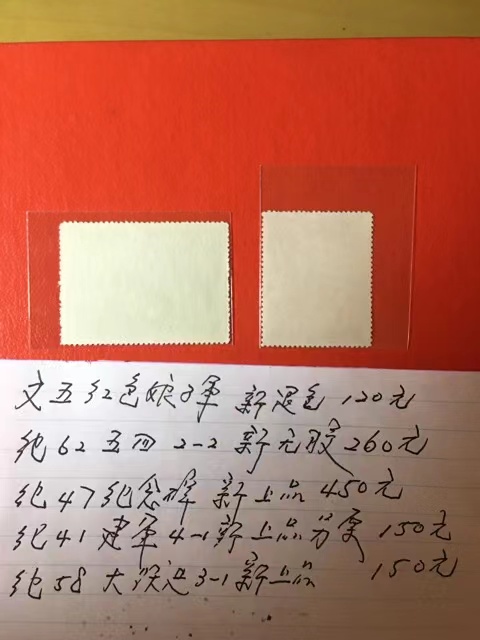 文五红色娘子军 新退色 120元
纪62五四2-2 新无胶260元
纪47纪念碑 新上品 450元
纪41建军4-1新上品 150元
纪58 大跃进3-1新上品 150元